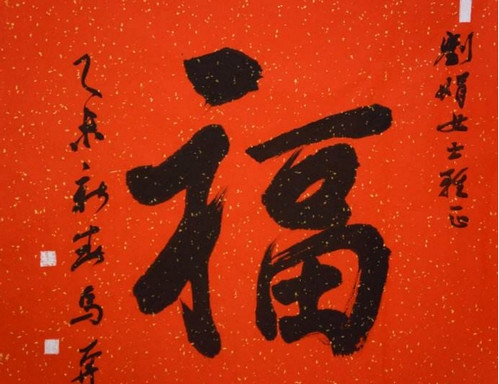 劉娟女士雅正
福
乙未新春